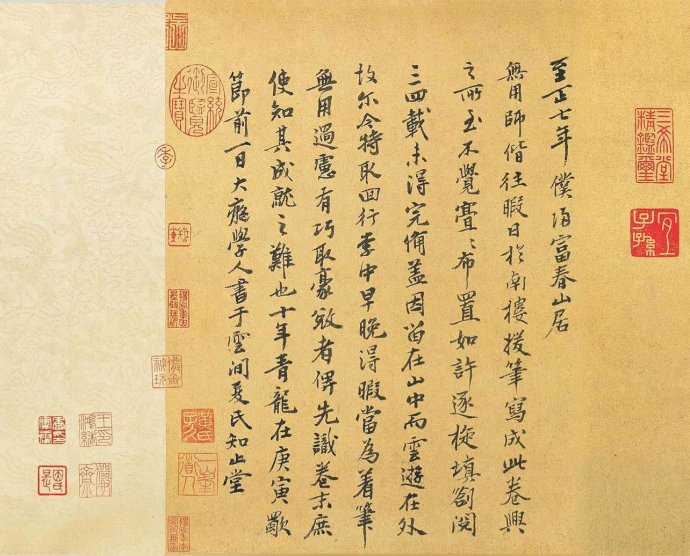 三希堂
精鑑璽
宜子孫
至正七年僕歸富春山居
無用師偕往暇日於南樓援筆寫成此卷興
之所至不覺亹〻布置如許逐旋填劄閱
三四載未得完備盖因留在山中而雲遊在外
故尔今特取回行李中早晚得暇當為着筆
無用過慮有巧取豪敚者俾先識卷末庶
使知其成就之難也十年青龍在庚寅歜
節前一日大癡學人書于雲間夏氏知止堂
宣統御覽之寶